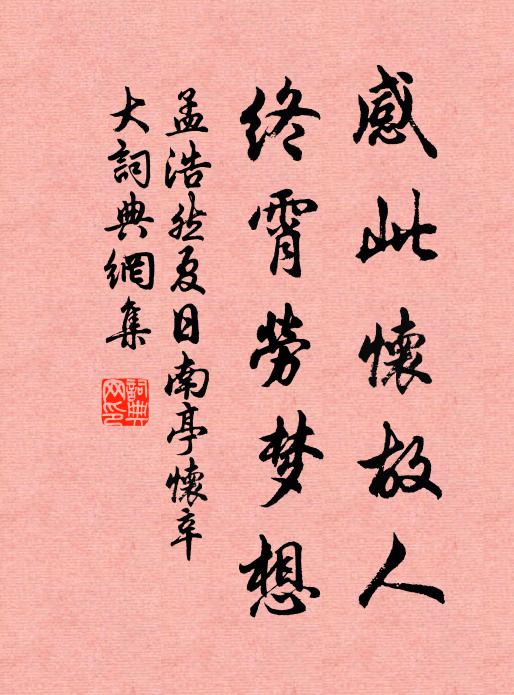 感此懷故人
終霄勞梦想
孟浩然夏日南亭懷辛
大詞典網集
詞典網印